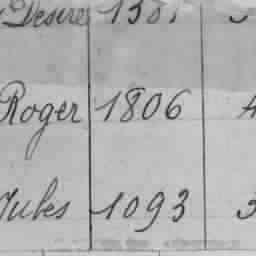 Desire
Roger 1806 4
Jules 1093